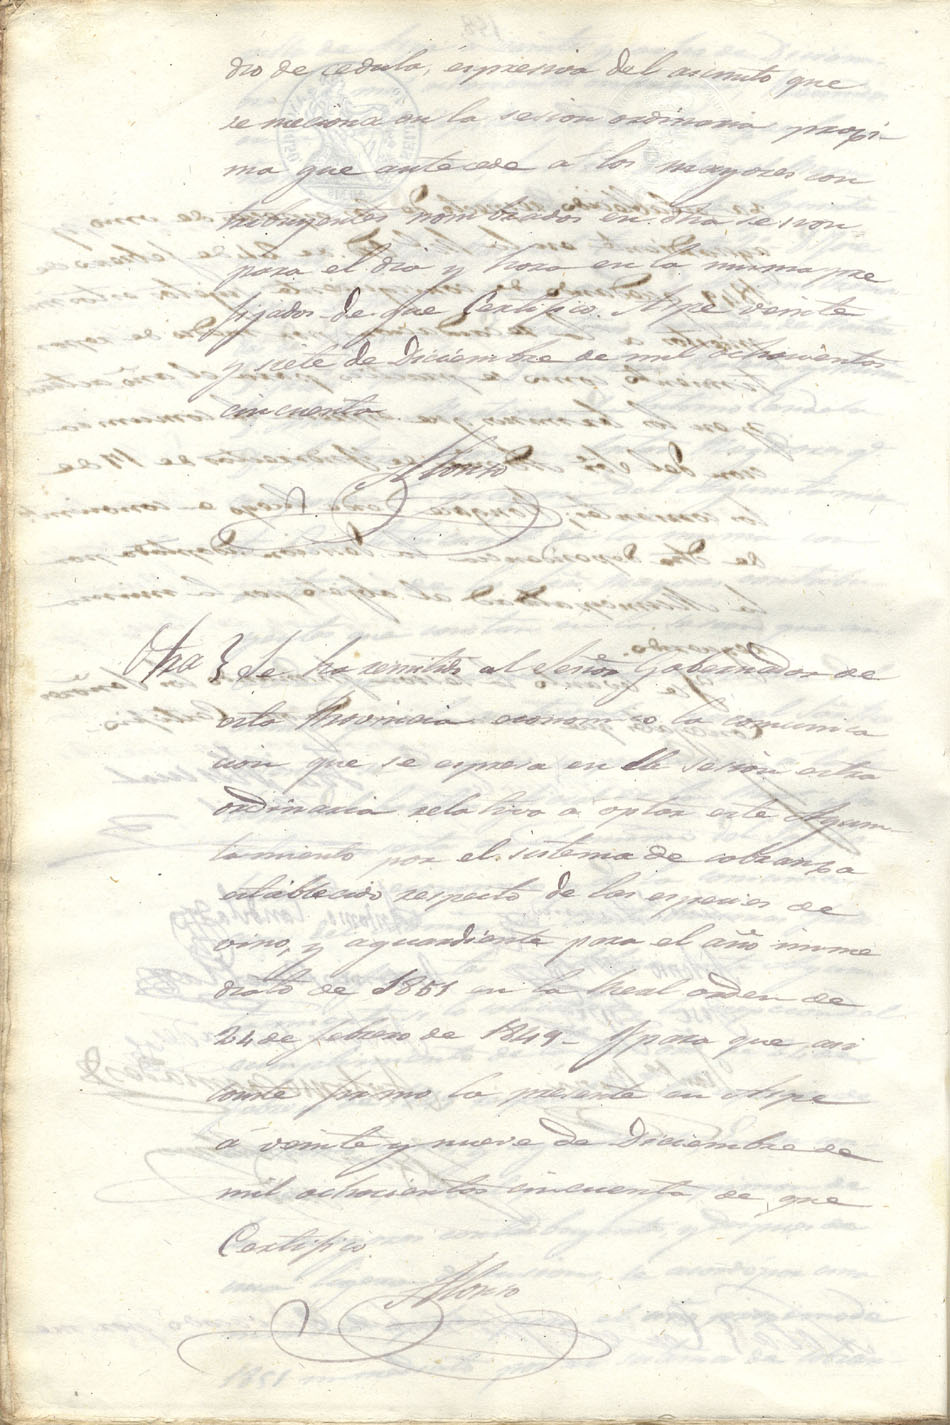 dio de cedula, espresiva del asunto que
se menciona en la sesion ordinaria proxi-
ma que antecede a los mayores con
tribuyentes nombrados en dha sesion
para el dia y hora en la misma pre
fijados- de que Certifico. Aspe veinte
y siete de Diciembre de mil ochocientos
cincuenta
Alonso
Otra } Se ha remitido al Señor Gobernador de
esta Provincia la comunica
cion que se espresa en la sesion estra
ordinaria relativa a optar este Ayun
tamiento por el sistema de cobranza
establecido respecto de las especies de
vino, y aguardiente para el año inme
diato de 1851 en la Real orden de
24 de febrero de 1849- Y para que asi
conste firmo la presente en Aspe
á veinte y nueve de Diciembre de
mil ochocientos cincuenta de que
Certifico.
Alonso